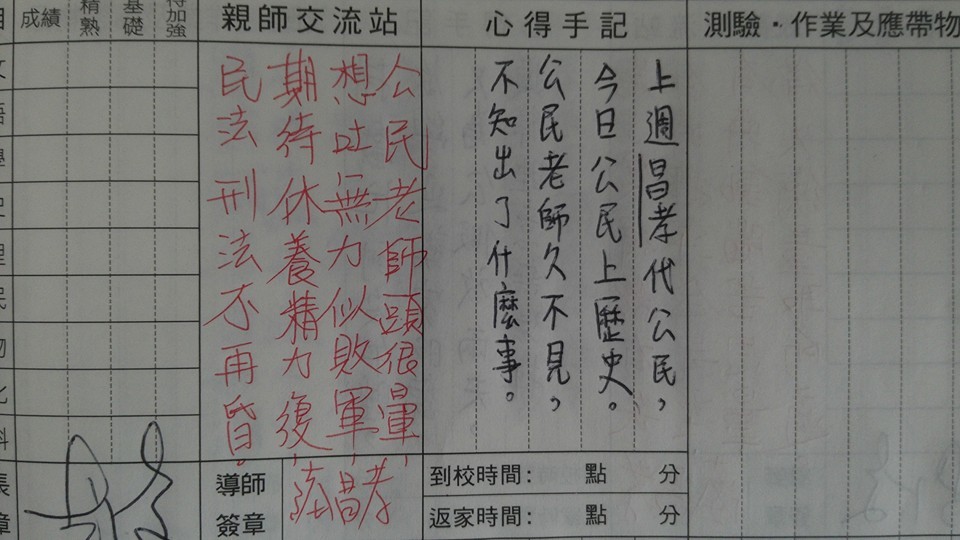 測驗・作業及應帶物
心得手記
親師交流站
成績
精熟
基礎
加強
上週昌孝代公民，
今日公民上歷史。
公民老師久不見，
不知出了什麼事。
公民老師頭很暈，
想吐無力似敗軍，
期待休養精力復，
民法刑法不再昏。
到校時間： 點 分
返家時間： 點 分
導師
簽章
昌孝